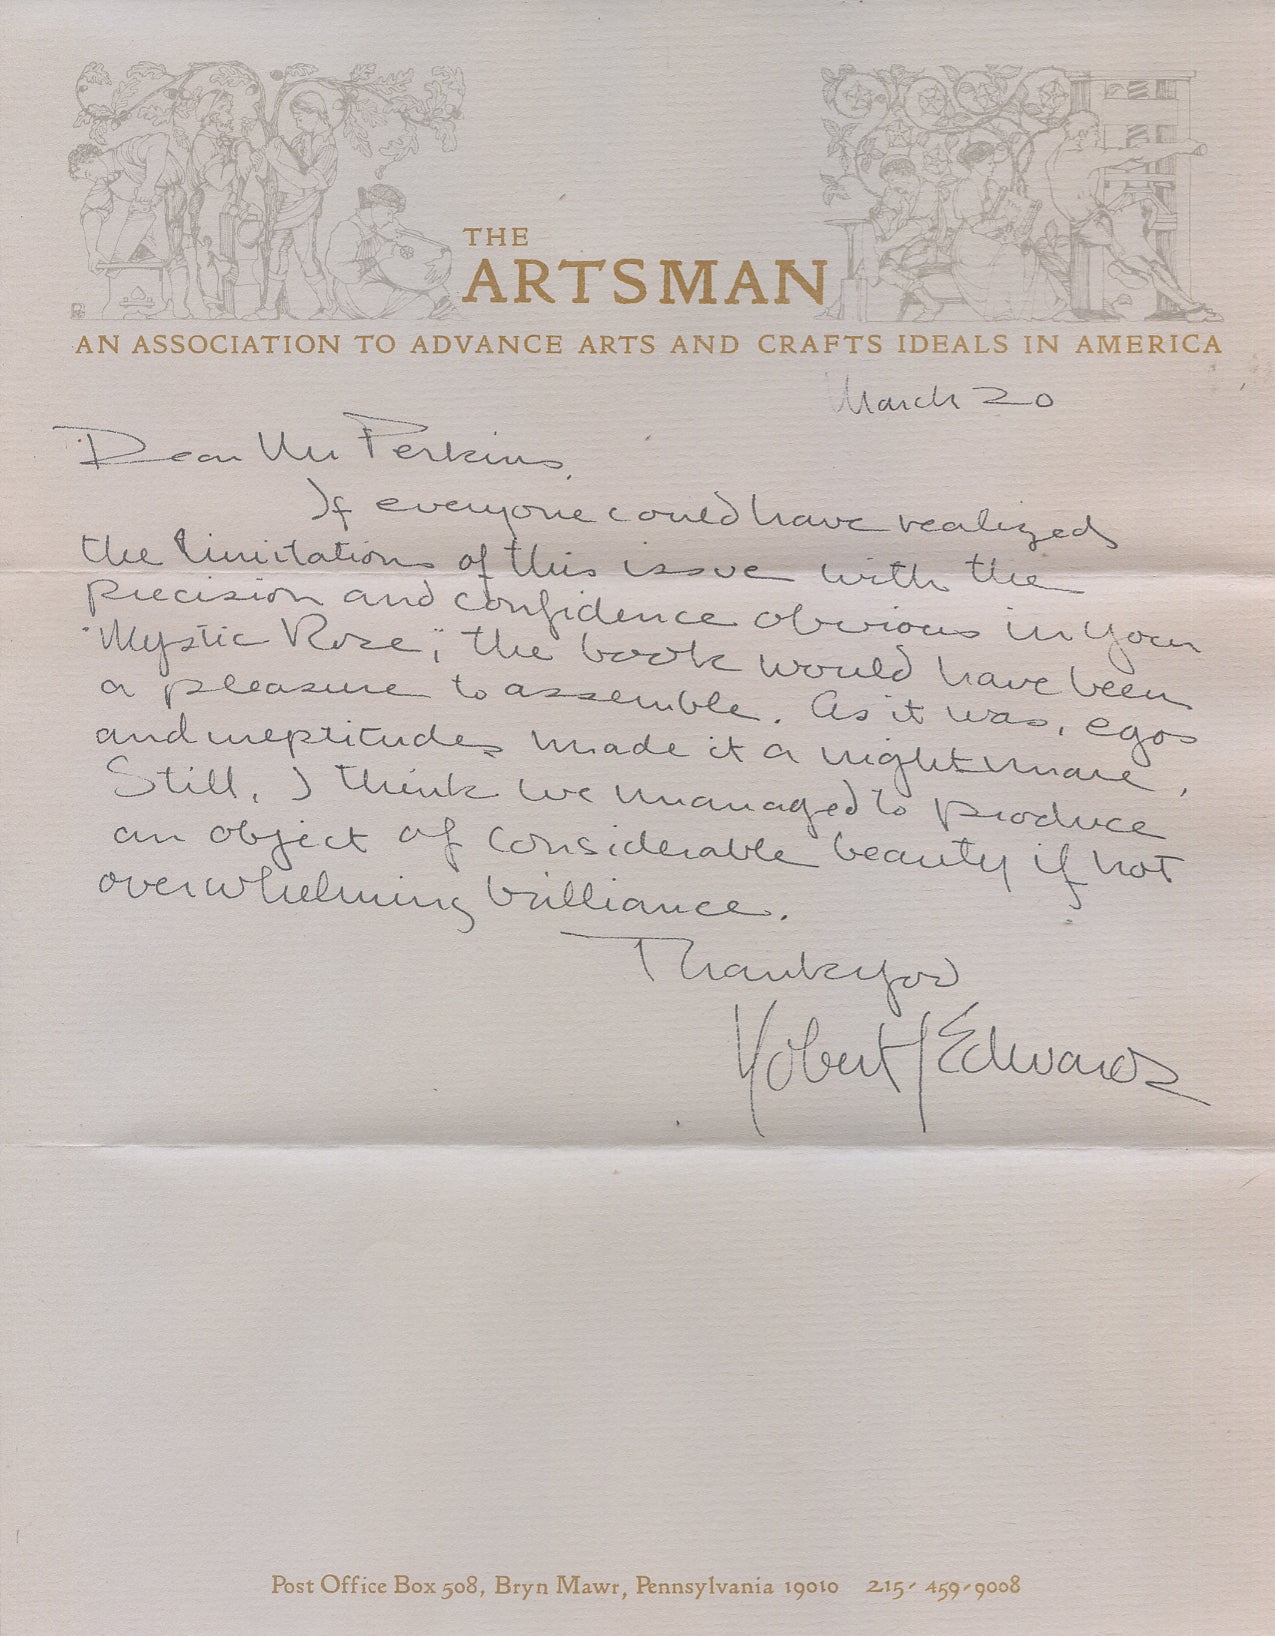 THE
ARTSMAN
AN ASSOCIATION TO ADVANCE ARTS AND CRAFTS IDEALS IN AMERICA
March 20
Dear Mr Perkins,
If everyone could have realized
the limitations of this issue with the
precision and confidence obvious in your
"Mystic Rose", the book would have been
a pleasure to assemble. As it was, egos
and ineptitudes made it a nightmare.
Still, I think we managed to produce
an object of considerable beauty if not
overwhelming brilliance.
Thank you
Robert Edwards
Post Office Box 508, Bryn Mawr, Pennsylvania 19010 215-459-9008